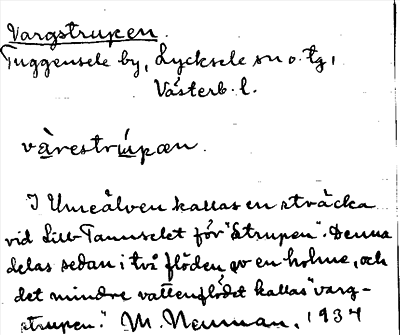 Vargstrupen.
Tuggensele by, Lycksele sn o. tg,
Västerb. l.
vàrestrúpæn.
I Umeälven kallas en sträcka
vid Lill-Tannselet för "Strupen". Denna
delas sedan i två flöden av en holme, och
det mindre vattenflödet kallas "varg-
strupen." M. Neuman, 1934